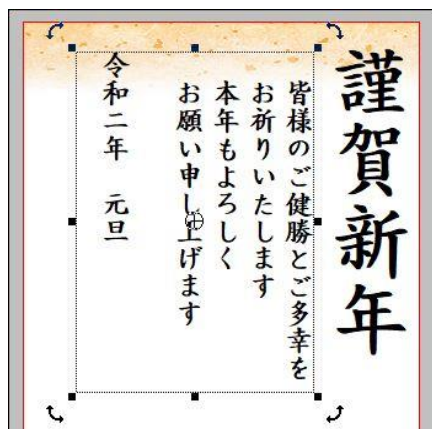 謹賀新年
皆様のご健勝とご多幸を
お祈りいたします
本年もよろしく
お願い申し上げます
令和二年　元旦